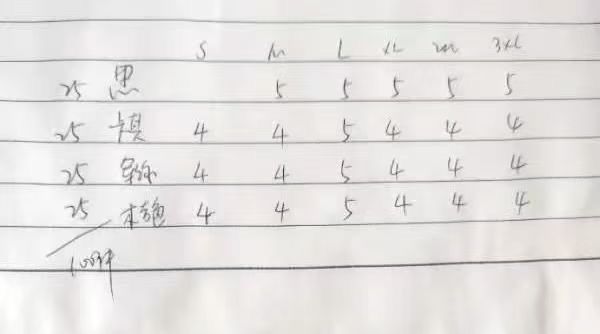 S M L XL 3XL
25 黑 5 5 5 5 5
25 卡其 4 4 5 4 4 4
25 军绿 4 4 5 4 4 4
25 4 4 5 4 4 4
100件